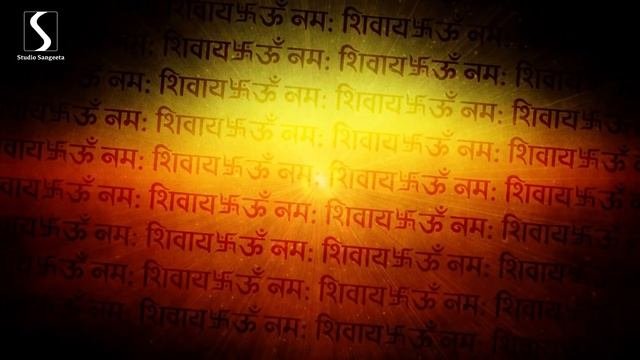 S
Studio Sangeeta
शिवाय卐ऊँ नम: शिवाय卐ऊँ नम:
शिवाय卐ऊँ नम: शिवाय卐ऊँ नम:
ऊँ नम: शिवाय卐ऊँ नम: शिवाय卐ऊँ नम:
卐ऊँ नम: शिवाय卐ऊँ नम: शिवाय卐ऊँ नम: शिवाय
卐ऊँ नम: शिवाय卐ऊँ नम: शिवाय卐ऊँ नम: शिवाय
卐ऊँ नम: शिवाय卐ऊँ नम: शिवाय卐ऊँ नम: शिवाय
卐ऊँ नम: शिवाय卐ऊँ नम: शिवाय卐ऊँ नम: शिवाय
卐ऊँ नम: शिवाय卐ऊँ नम: शिवाय卐ऊँ नम: शिवाय
ऊँ नम: शिवाय卐ऊँ नम: शिवाय卐ऊँ नम:
शिवाय卐ऊँ नम: शिवाय卐ऊँ नम: